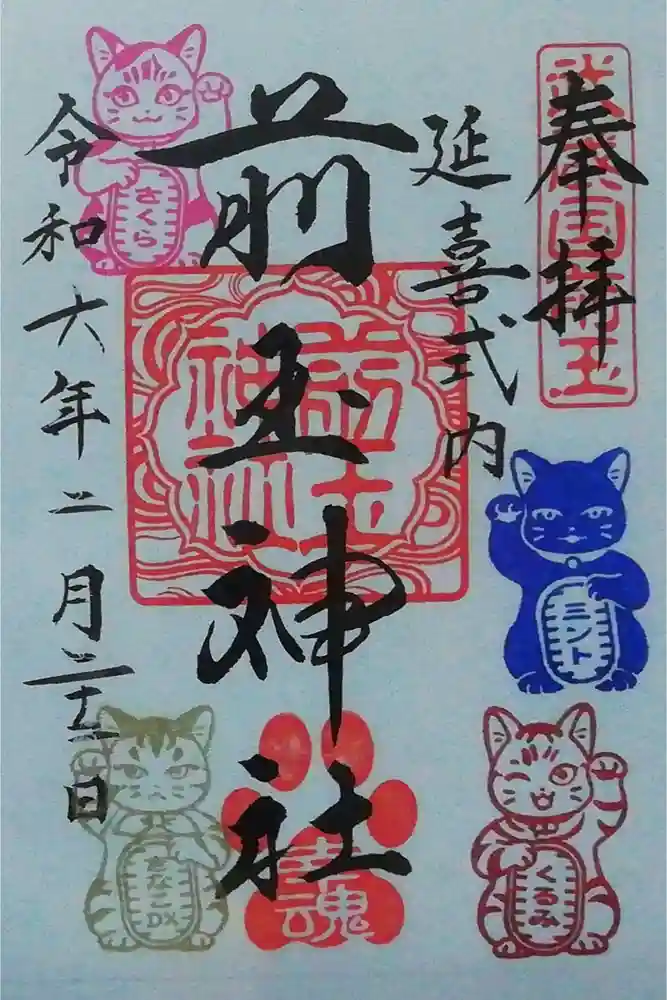 奉拝
武蔵国埼玉
延喜式内
前玉神社
前玉
神社
令和六年二月二十二日
さくら
ミント
くるみ
幸魂
きなこ
DX